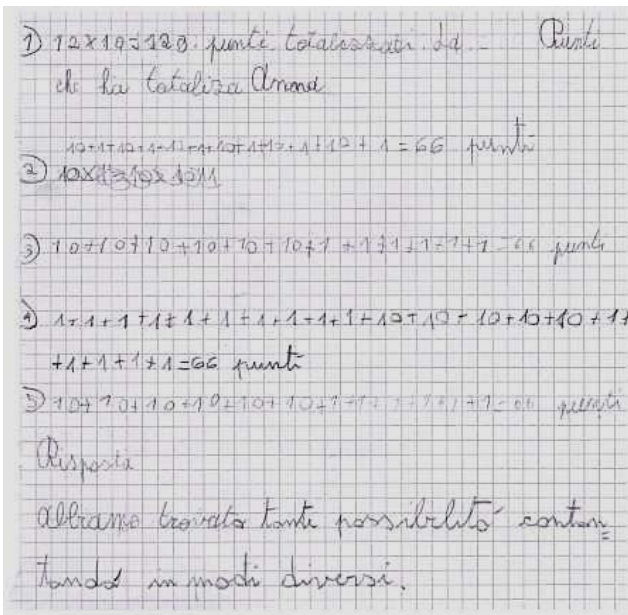 1) 12×10=120 punti totalizzati da Punti
che ha totaliza Anna
10+1+10+1+10+1+10+1+10+1+10+1=66 punti
2)
3) 10+10+10+10+10+10+1+1+1+1+1+1=66 punti
4) 1+1+1+1+1+1+1+1+1+1+10+10+10+10+10+1+
+1+1+1+1+1=66 punti
5) 10+10+10+10+10+10+1+1+1+1+1+1=66 punti
Risposta
Abbiamo trovato tante possibilità contan=
tando in modi diversi.